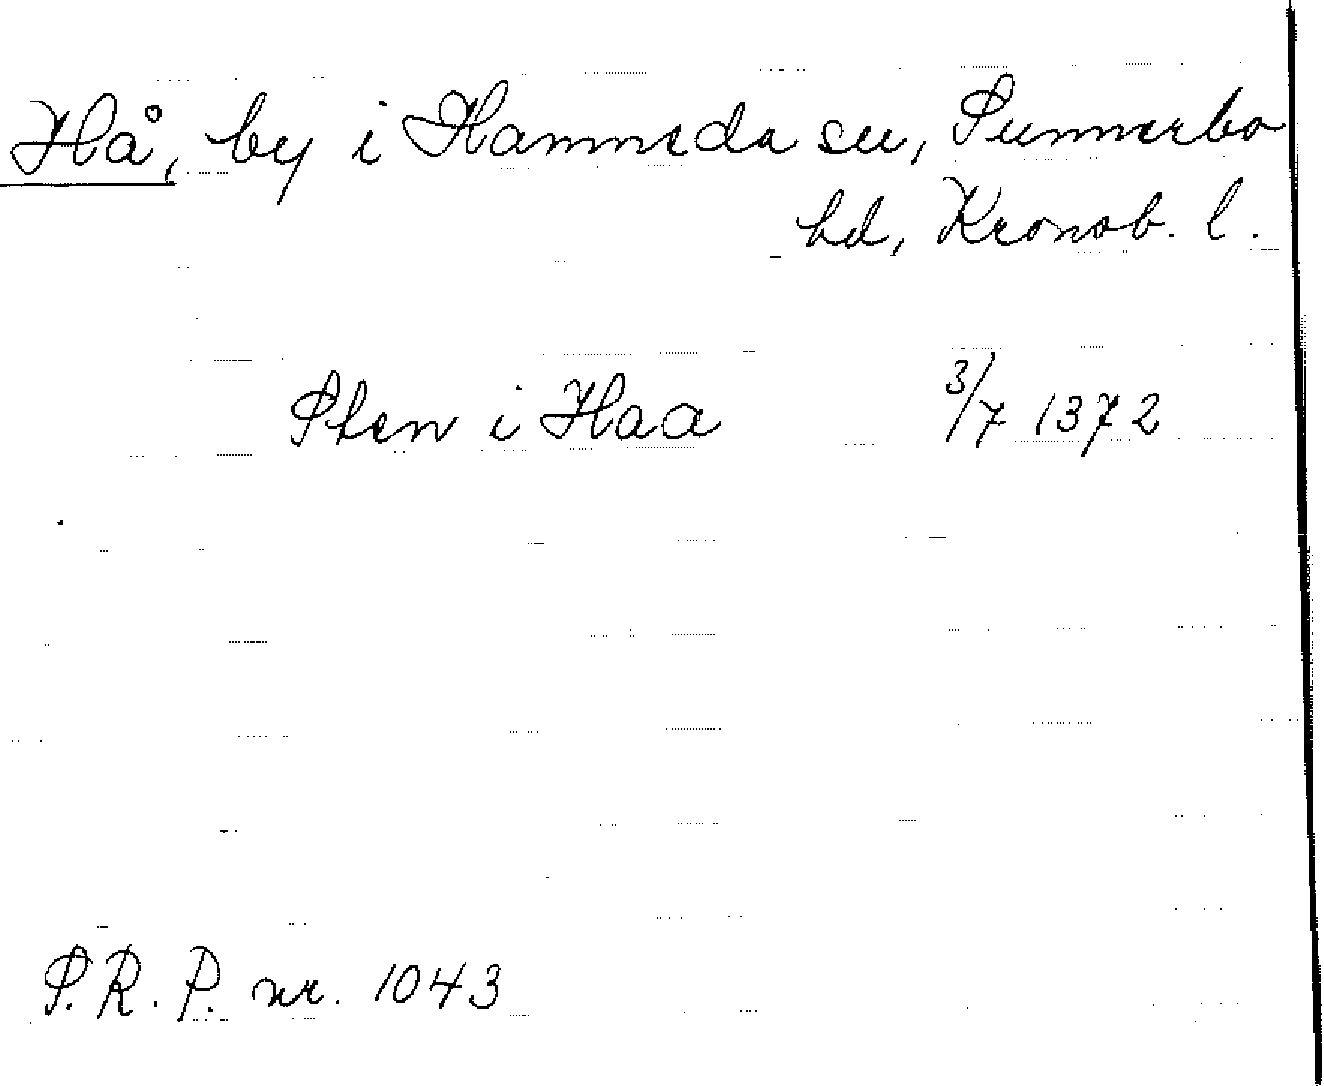 Hå, by i Hamneda sn, Sunnerbo
hd, Kronob. l.
Sten i Haa 3/7 1372
S.R.P. nr. 1043